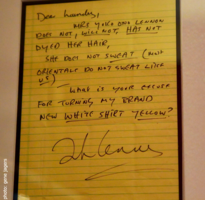 Dear Laundry,
MRS YOKO ONO LENNON
DOES NOT, WILL NOT, HAS NOT
DYED HER HAIR,
SHE DOES NOT SWEAT (MOST
ORIENTALS DO NOT SWEAT LIKE
US)
WHAT IS YOUR EXCUSE
FOR TURNING MY BRAND
NEW WHITE SHIRT YELLOW?